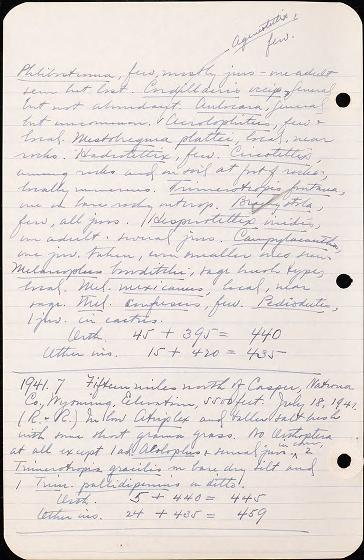 Ageneotettix
few.
Philibostroma, few, mostly juvs - one adult
seen but lost. Cordillacris occip, general
but not abundant. Aulocara, general
but uncommon. Aerolophitus, few &
local. Mestobregma plattei, local, near
rocks. Hadrotettix, few. Circotettix,
among rocks and on soil at foot of rocks,
locally numerous. Trimerotropis fontana,
one on bare rocky outcrop. Bradynotes,
few, all juvs. Hesperotettix viridis,
one adult - several juvs. Campylacantha,
one juv. taken, even smaller ones seen.
Melanoplus bowditchi, sage brush type,
local. Mel. mexicanus, local, near
sage. Mel. confusus, few. Pediodectes,
1 juv. in cactus.
Orth. 45 + 395 = 440
Other ins. 15 + 420 = 435
1941.7 Fifteen miles north of Casper, Natrona
Co., Wyoming, Elevation, 5500 feet. July 18, 1941.
(R. & R.) In low Atriplex and taller salt bush
with some short grama grass. No Orthoptera
at all except 1 ad. Aeoloplus & several juvs. in chry, 2
Trimerotropis gracilis on bare, dry silt and
1 Trim. pallidipennis in ditto.
Orth. 5 + 440 = 445
Other ins. 24 + 435 = 459